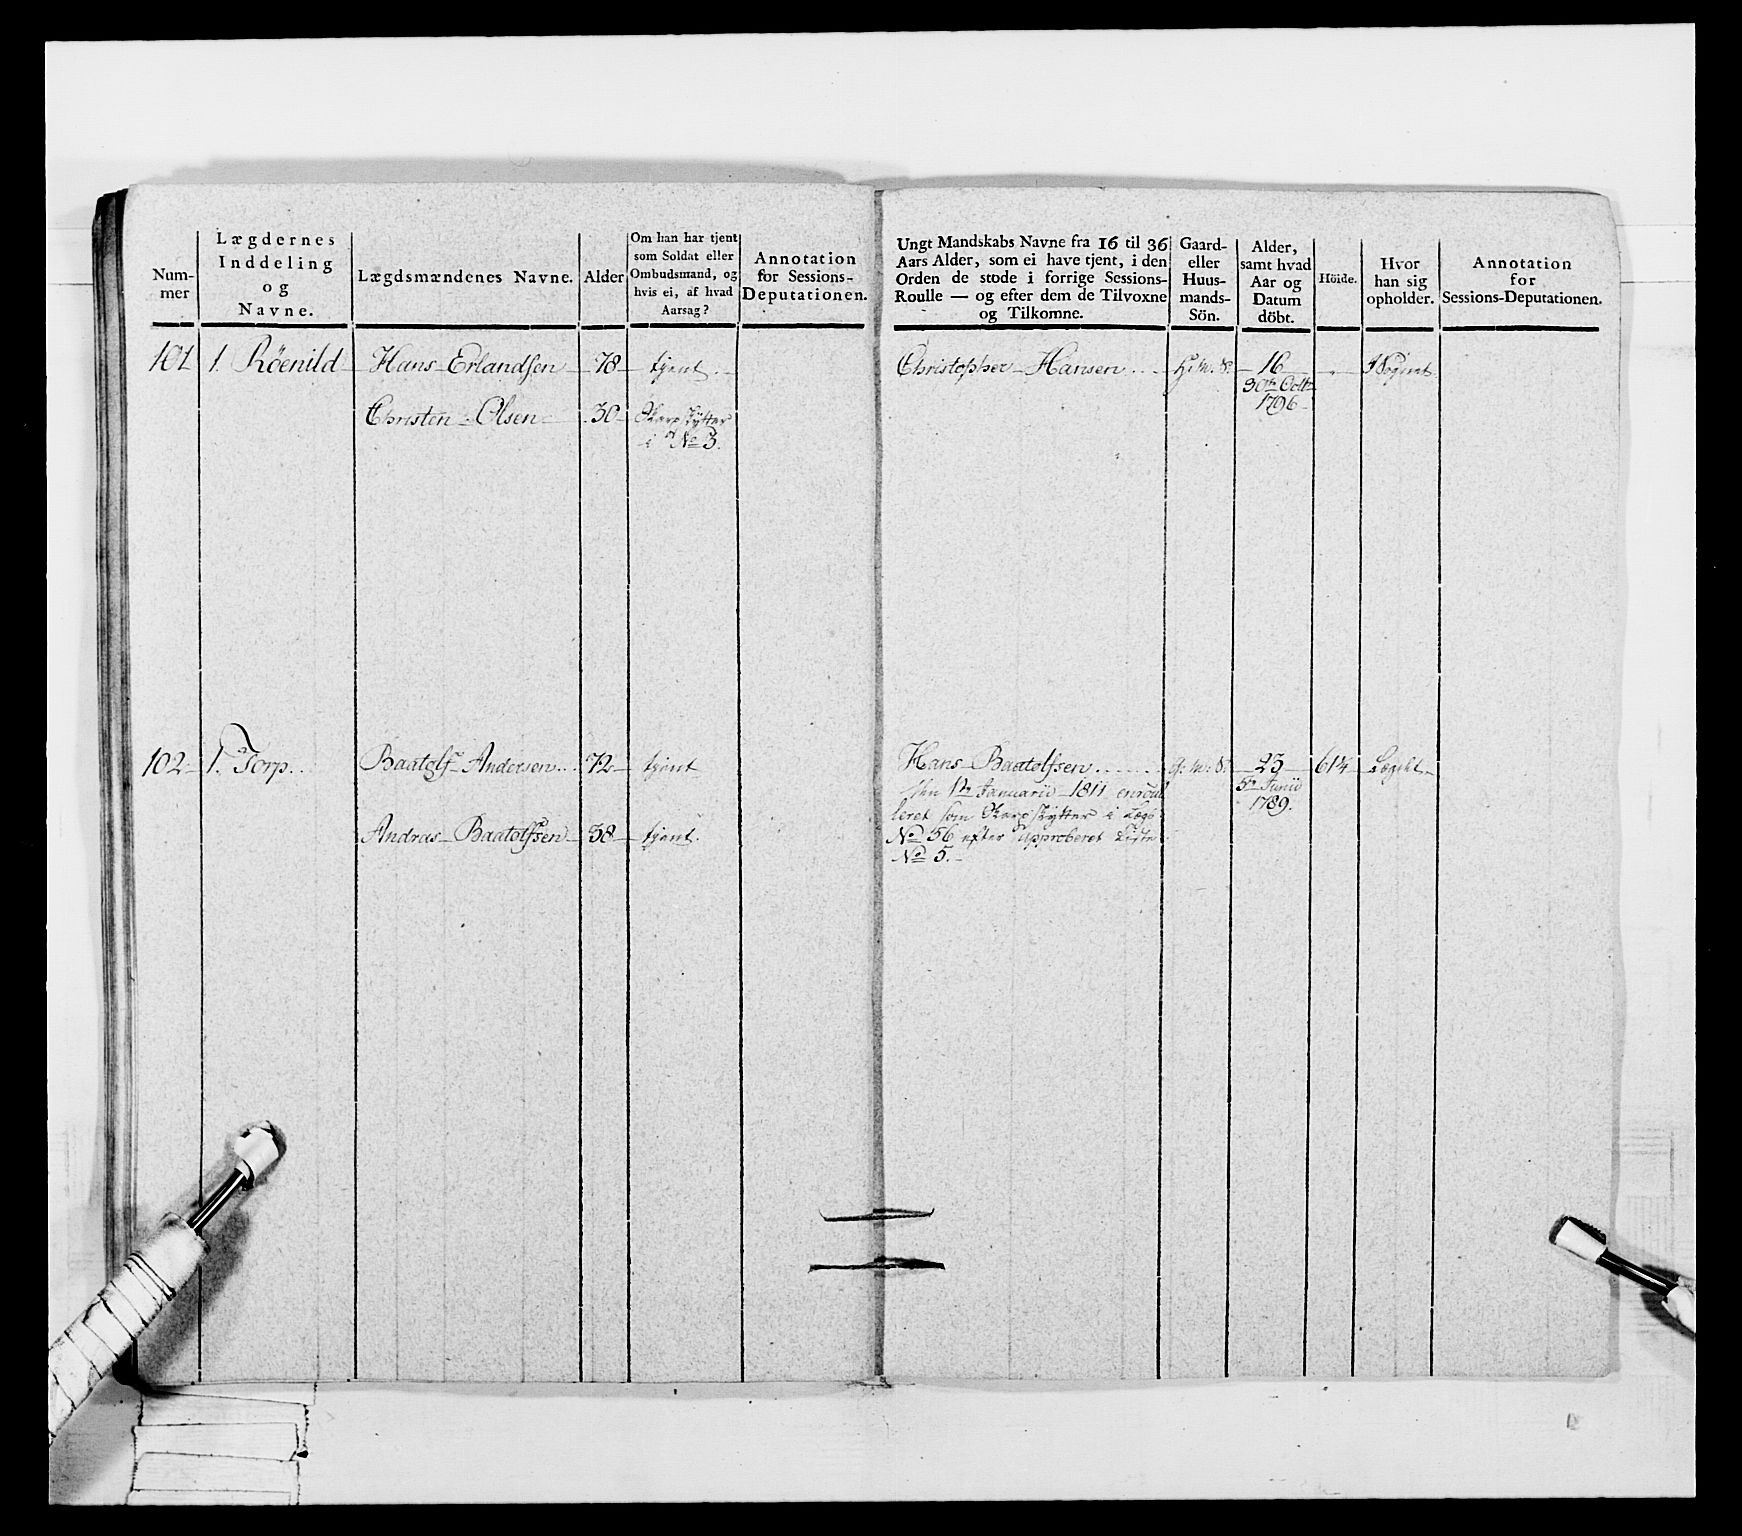 Num-
mer
Lægdernes
Inddeling
og
Navne.
Lægdsmændenes Navne.
Alder
Om han har tjent
som Soldat eller
Ombudsmand, og
hvis ei, af hvad
Aarsag?
Annotation
for Sessions-
Deputationen.
101 1. Röenild Hans Erlandsen 78 tjent.
Christen Olsen 30 Skarpskytter
i No 3.
102 1. Torp Baatolf Andersen 72 tjent
Andras Baatolfsen 38 tjent.
Ungt Mandskabs Navne fra 16 til 36
Aars Alder, som ei have tjent, i den
Orden de stode i forrige Sessions-
Roulle — og efter dem de Tilvoxne
og Tilkomne.
Gaard-
eller
Huus-
mands-
Sön.
Alder,
samt hvad
Aar og
Datum
döbt.
Höide.
Hvor
han sig
opholder.
Annotation
for
Sessions-Deputationen.
Christopher Hansen 16 I Sognet
30te Octbr
1796
Hans Baatolfsen G: M: S: 23 61¼ Lægdet
den 1te Januarii 1811 enroul 5te Junii
leret som Skarpskytter i Lægd 1789.
No 56 efter approberet Liste
No 5.